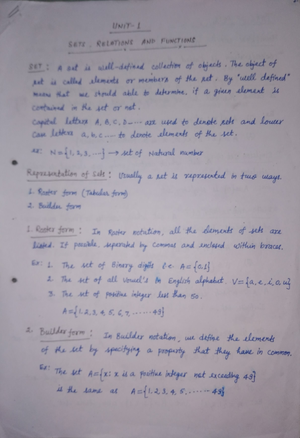 UNIT-1
SETS, RELATIONS AND FUNCTIONS
SET : A set is well-defined collection of objects. The object of
set is called elements or members of the set. By "well defined"
means that we should able to determine if a given element is
contained in the set or not.
Capital letters A, B, C, D..... are used to denote sets and lower
case letters a, b, c ..... to denote elements of the set.
ex: N = {1, 2, 3, ...} → set of natural number
Representation of Sets : Usually a set is represented in two ways
1. Roster form (Tabular form)
2. Builder form
1. Roster form : In Roster notation, all the elements of sets are
listed. If possible, seperated by commas and enclosed within braces.
Ex: 1. The set of Binary digits i.e. A = {0,1}
2. The set of all Vowel's in English alphabet, V = {a, e, i, o, u}
3. The set of positive integer less than 50.
A = {1, 2, 3, 4, 5, 6, 7, ...... 49}
2. Builder form : In Builder notation, we define the elements
of the set by specifying a property that they have in common.
Ex: The set A = {x : x is a positive integer not exceeding 49}
is the same as A = {1, 2, 3, 4, 5, ...... 49}